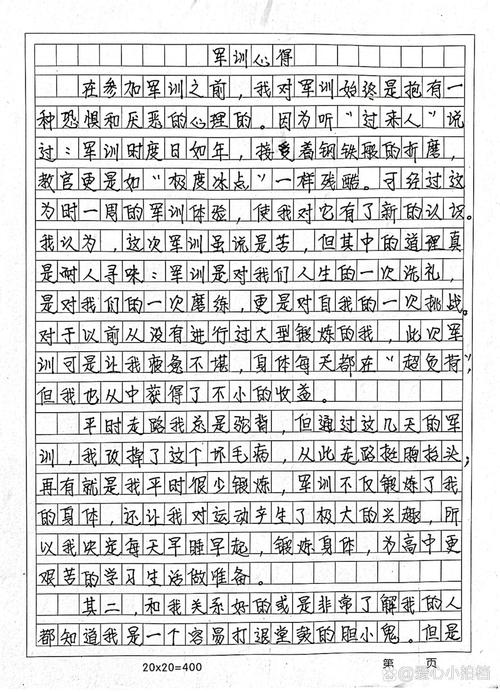 军训心得
在参加军训之前，我对军训始终是抱有一
种恐惧和厌恶的心理的。因为听“过来人”说
过：军训时度日如年，接受着钢铁般的折磨，
教官更是如“极度冰点”一样残酷。可经过这
为时一周的军训体验，使我对它有了新的认识。
我认为，这次军训虽说是苦，但其中的道理真
是耐人寻味：军训是对我们人生的一次洗礼，
是对我们的一次磨练，更是对自我的一次挑战。
对于以前从没有进行过大型锻炼的我，此次军
训可是让我疲惫不堪，身体每天都在“超负荷”，
但我也从中获得了不小的收益。
平时走路我总是弯背，但通过这几天的军
训，我改掉了这个坏毛病，从此走路挺胸抬头；
再有就是我平时很少锻炼，军训不仅锻炼了我
的身体，还让我对运动产生了极大的兴趣，所
以我决定每天早睡早起，锻炼身体，为高中更
艰苦的学习生活做准备。
其二，和我关系好的或是非常了解我的人
都知道我是一个容易打退堂鼓的胆小鬼。但是
20×20=400
第 页
@爱心小铅档